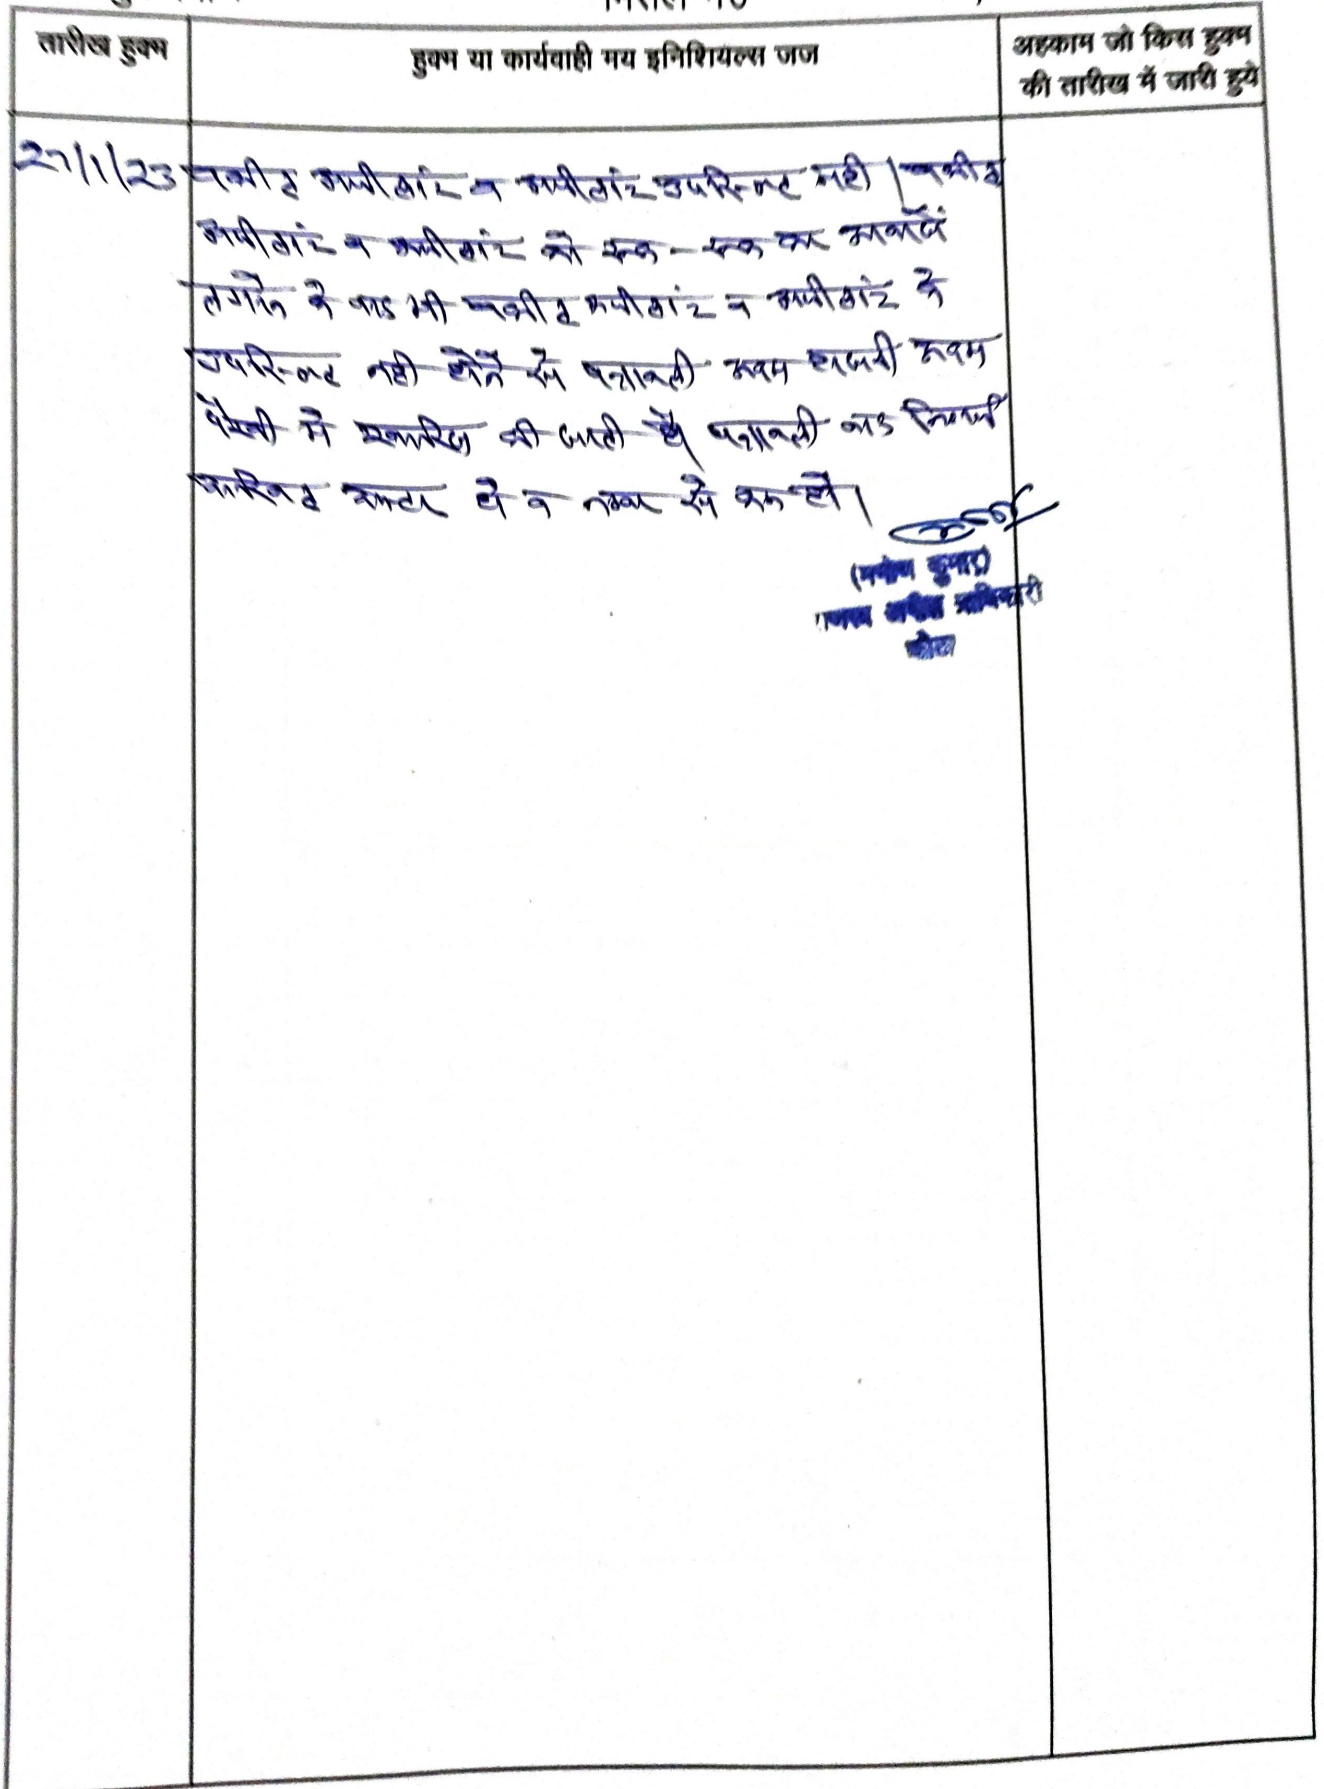 तारीख हुक्म
हुक्म या कार्यवाही मय इनिशियल्स जज
अहकाम जो किस हुक्म
की तारीख में जारी हुये
27/1/23
वकील अपीलांट व अपीलांट उपस्थित नही। वकील
अपीलांट व अपीलांट को रूक-रूक कर आवाजें
लगाने के बाद भी वकील अपीलांट व अपीलांट के
उपस्थित नही होने से पत्रावली अदम हाजरी अदम
पैरवी में खारिज की जाती है। पत्रावली बाद
दाखिल दफ्तर हो व नम्बर से कम हो।
कुमार)
अपील अधिकारी
कोटा